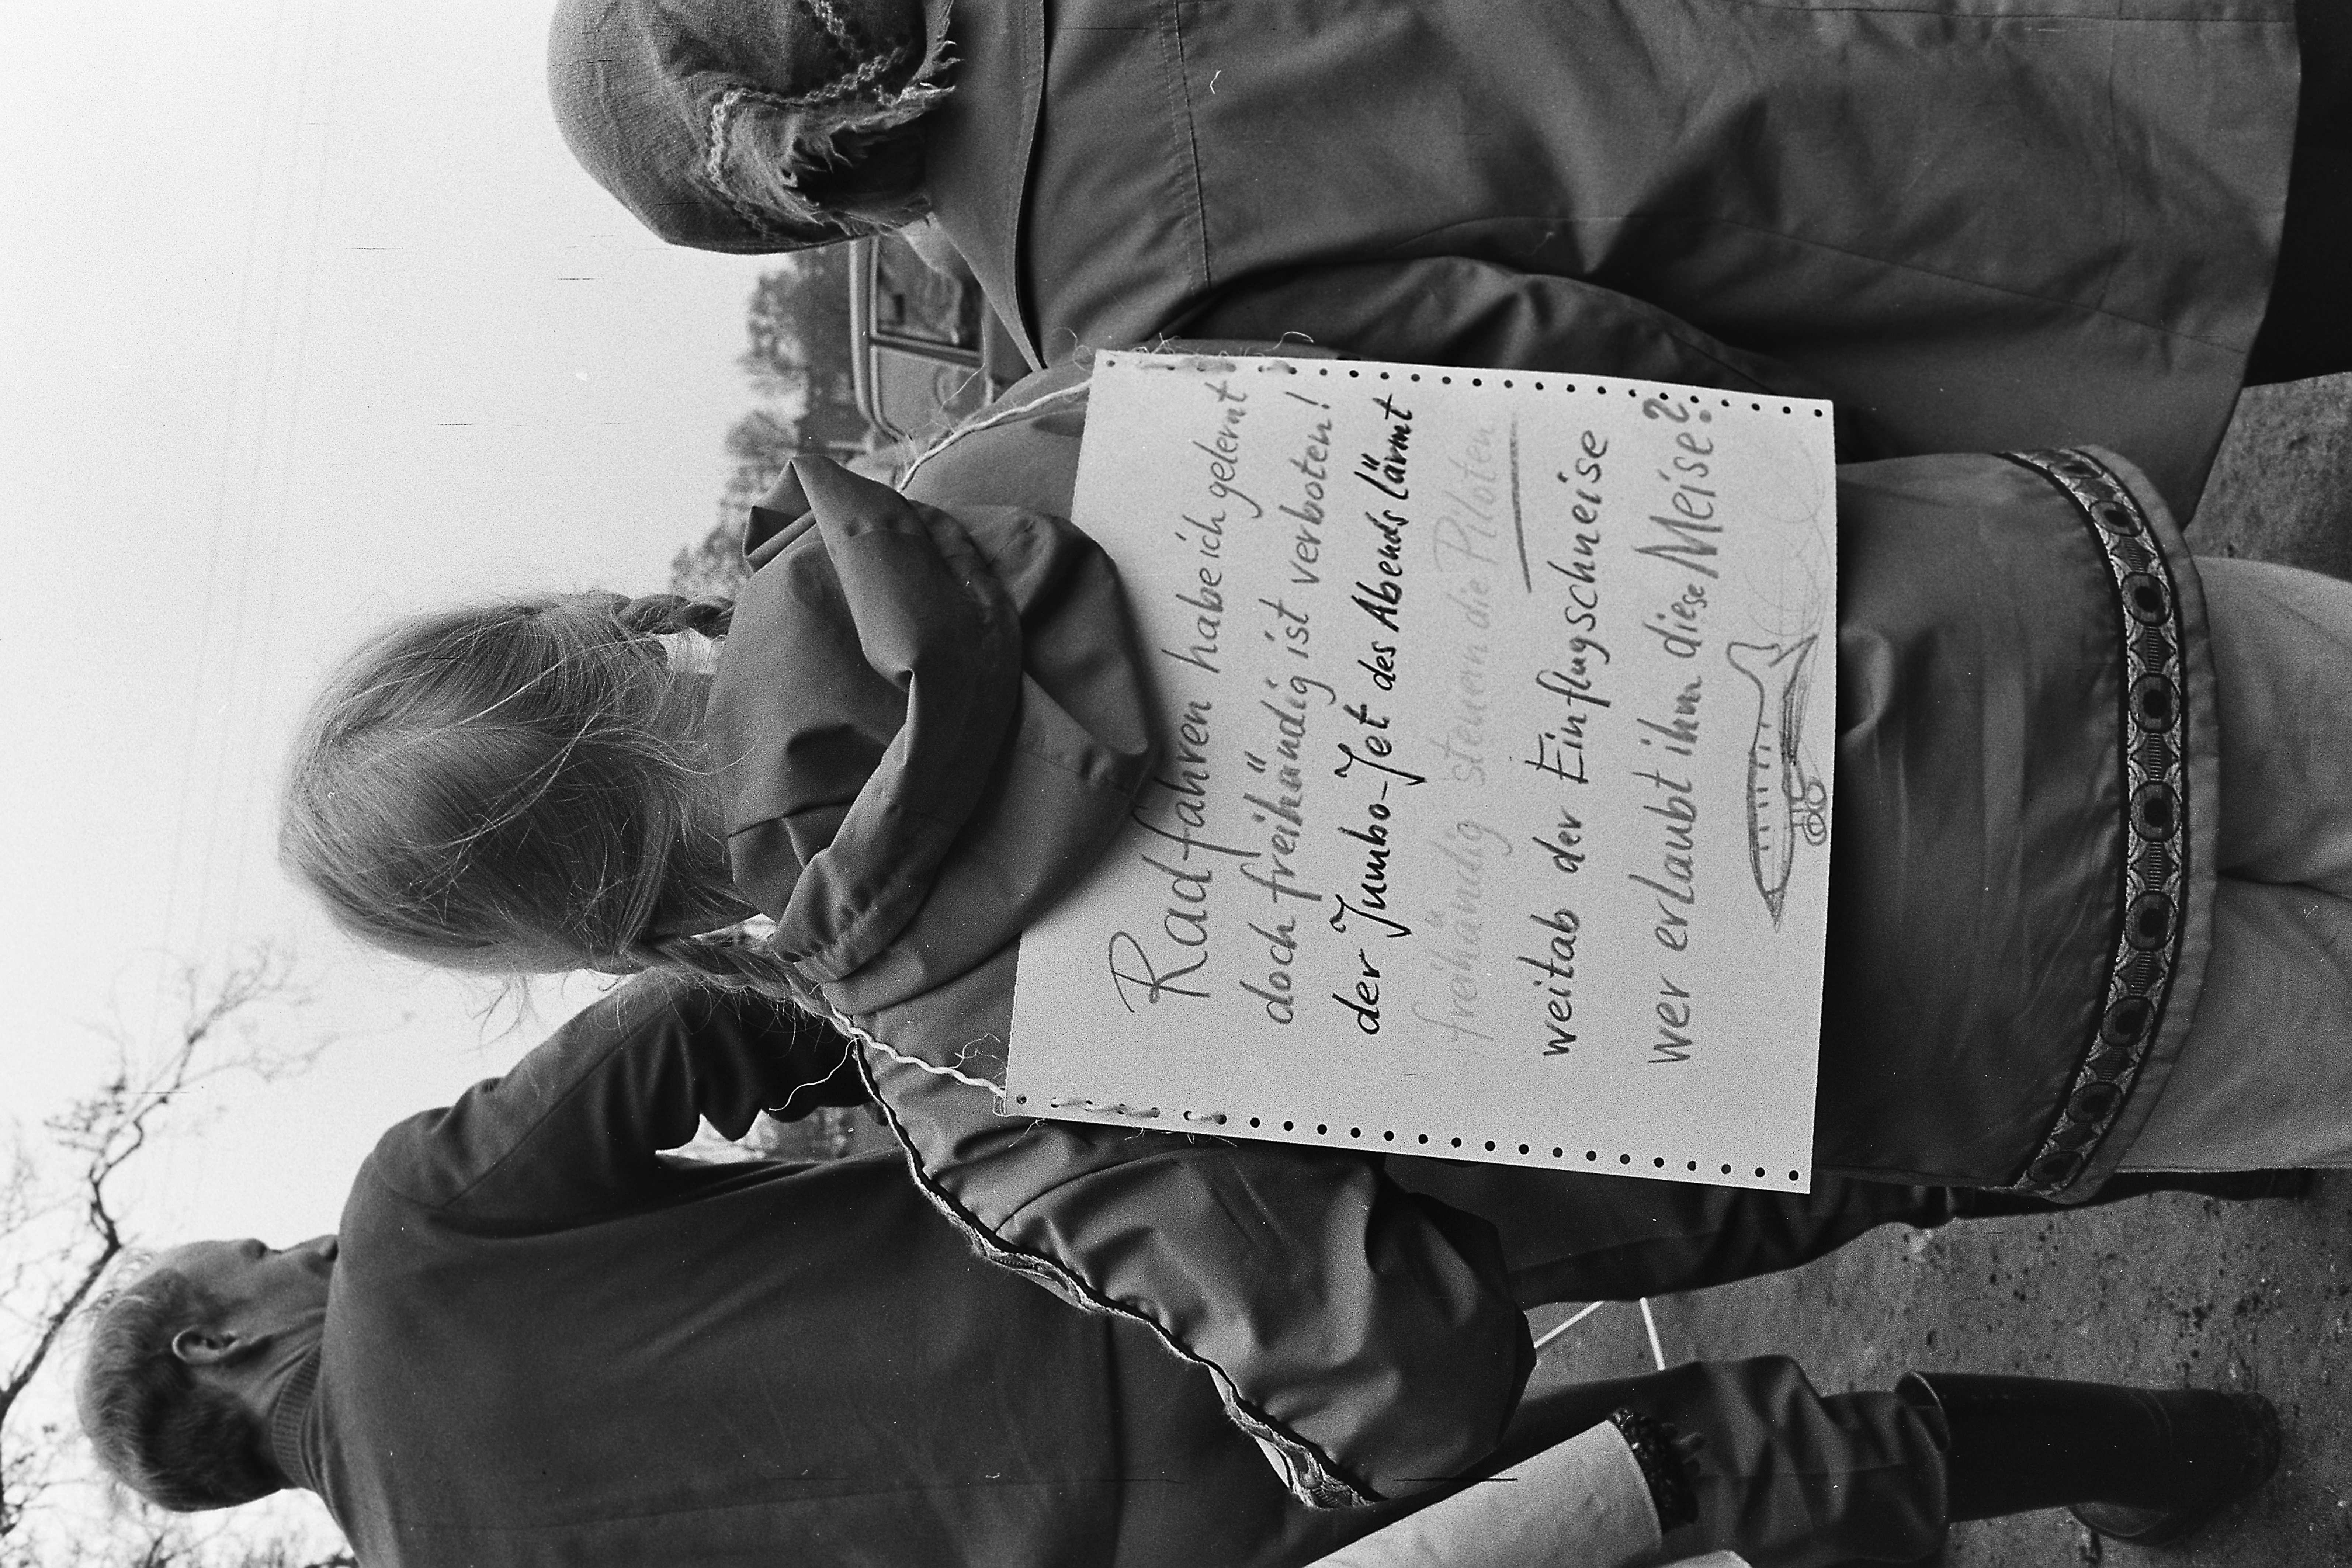 Radfahren habe ich gelernt
doch freihändig ist verboten!
der Jumbo-Jet des Abends lärmt
freihändig steuern die Piloten
weitab der Einflugschneise
wer erlaubt ihm diese Meise?